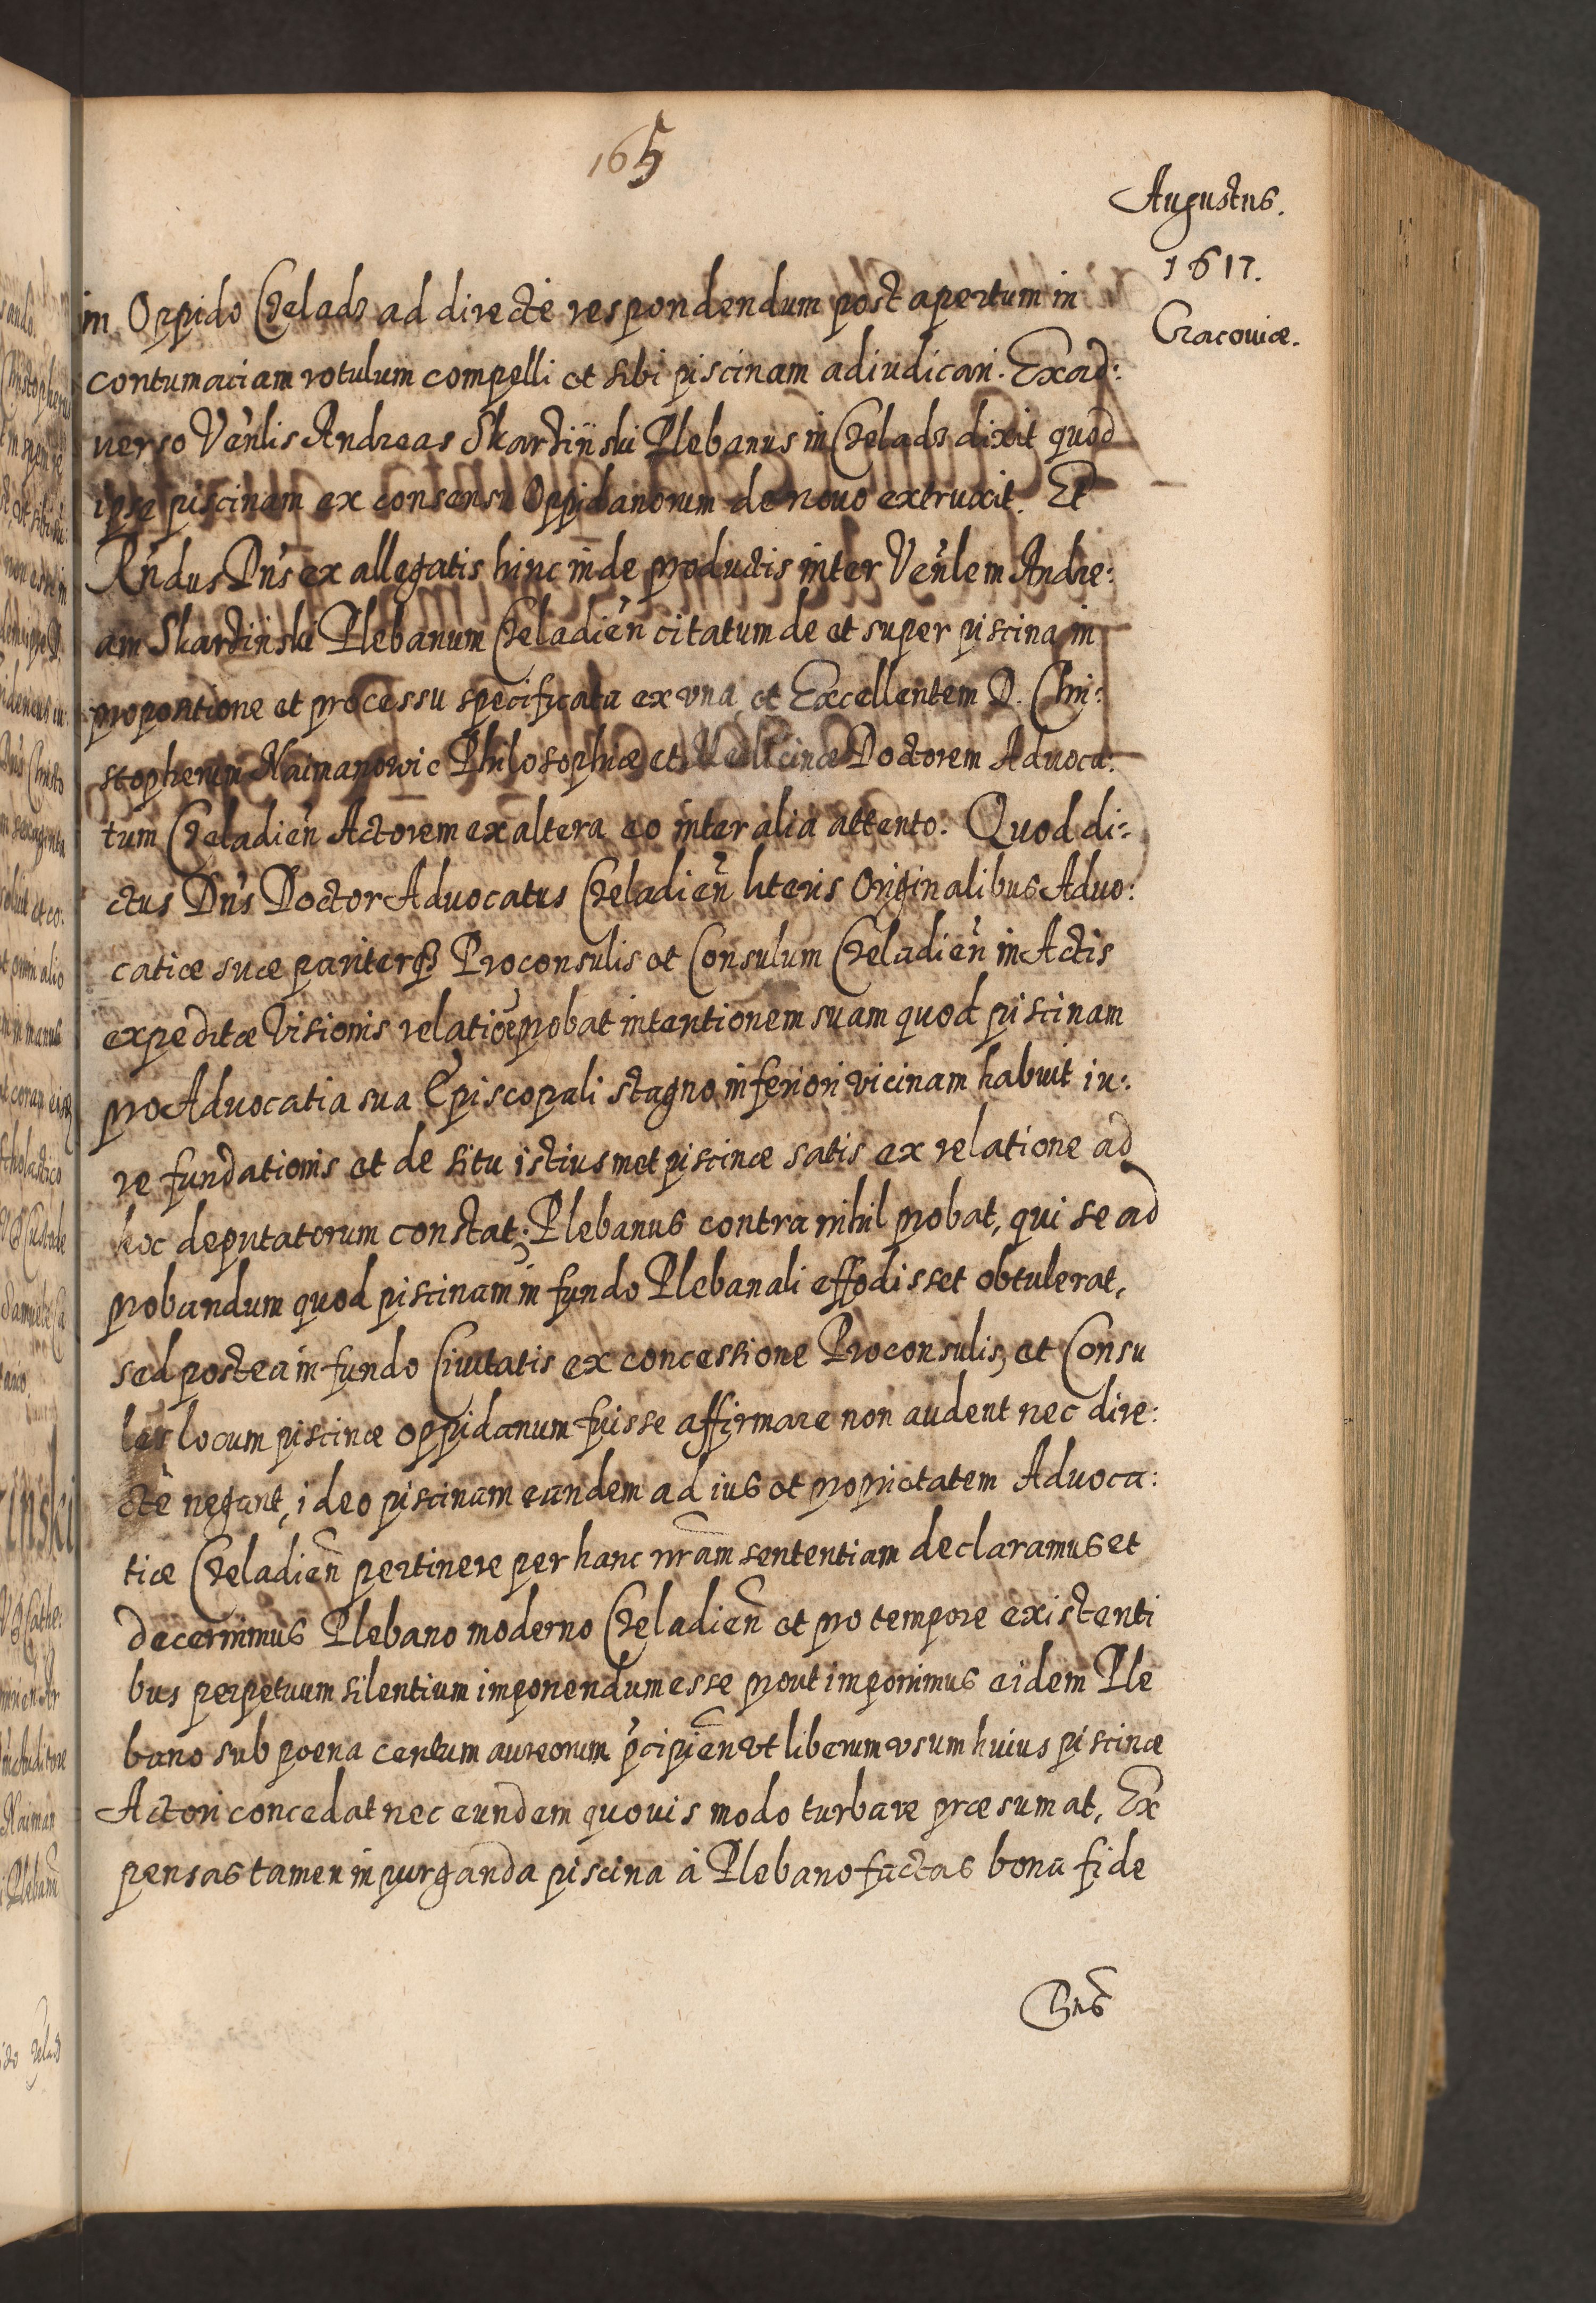 165
Augustus.
1617.
Cracouiæ.
in Oppido Czeladz ad directè respondendum post apertum in
contumaciam rotulum compelli et sibi piscinam adiudicari. Exad:
uerso Venlis Andreas Skarzinski Plebanus in Czeladz dixit quod
ipse piscinam ex consensu Oppidanorum de nouo extruxit. Et
Rndus Dns ex allegatis hinc inde productis inter Venlem Andre:
am Skarzinski Plebanum Czeladien citatum de et super piscina in
propositione et processu specificata ex vna et Excellentem D. Chri:
stopherum Naimanowic Philosophiæ et Medicinæ Doctorem Aduoca:
tum Czeladien Actorem ex altera eo inter alia attento. Quod di:
ctus Dns Doctor Aduocatus Czeladien literis Originalibus Aduo:
catiæ suæ pariterq Proconsulis et Consulum Czeladien in Actis
expeditæ Visionis relatioe probat intentionem suam quod piscinam
pro Aduocatia sua Episcopali stagno inferiori vicinam habuit iu:
re fundationis et de situ istiusmet piscinæ satis ex relatione ad
hoc deputatorum constat; Plebanus contra nihil probat, qui se ad
probandum quod piscinam in fundo Plebanali effodisset obtulerat,
sed postea in fundo Ciuitatis ex concessione Proconsulis, et Consu
les locum piscinæ oppidanum fuisse affirmare non audent nec dire:
ctè negant, ideo piscinam eandem ad ius et proprietatem Aduoca:
tiæ Czeladien pertinere per hanc nram sententiam declaramus et
decernimus Plebano moderno Czeladien et pro tempore existenti
bus perpetuum silentium imponendum esse prout imponimus eidem Ple
bano sub poena centum aureorum pcipien vt liberum vsum huius piscinæ
Actori concedat nec eundem quouis modo turbare præsumat, Ex
pensas tamen in purganda piscina à Plebano factas bona fide